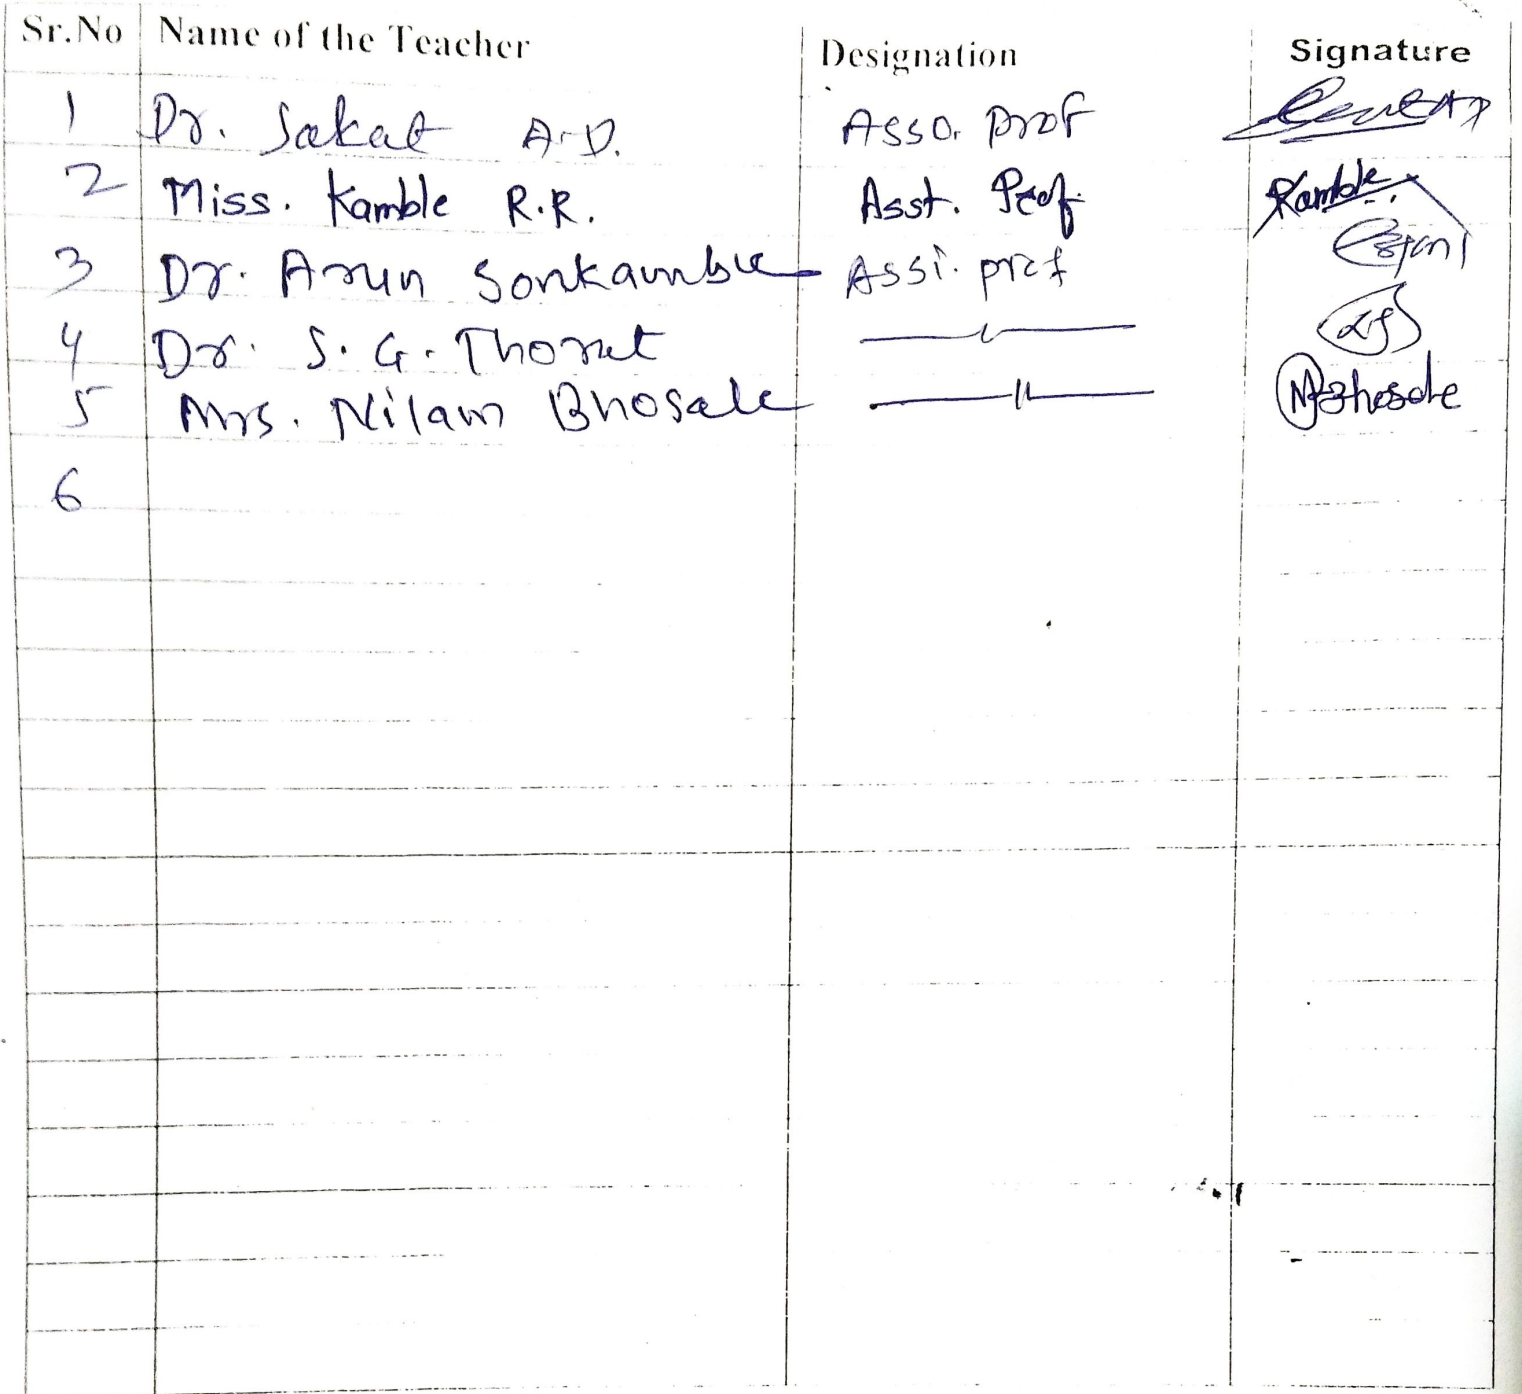 Sr.No Name of the Teacher Designation Signature
1 Dr. Sakat A.D. Asso. prof
2 Miss. Kamble R.R. Asst. Prof. Kamble
3 Dr. Arun Sonkamble Assi. prof
4 Dr. S. G. Thorat —〃—
5 Mrs. Nilam Bhosale —〃— NBhosale
6